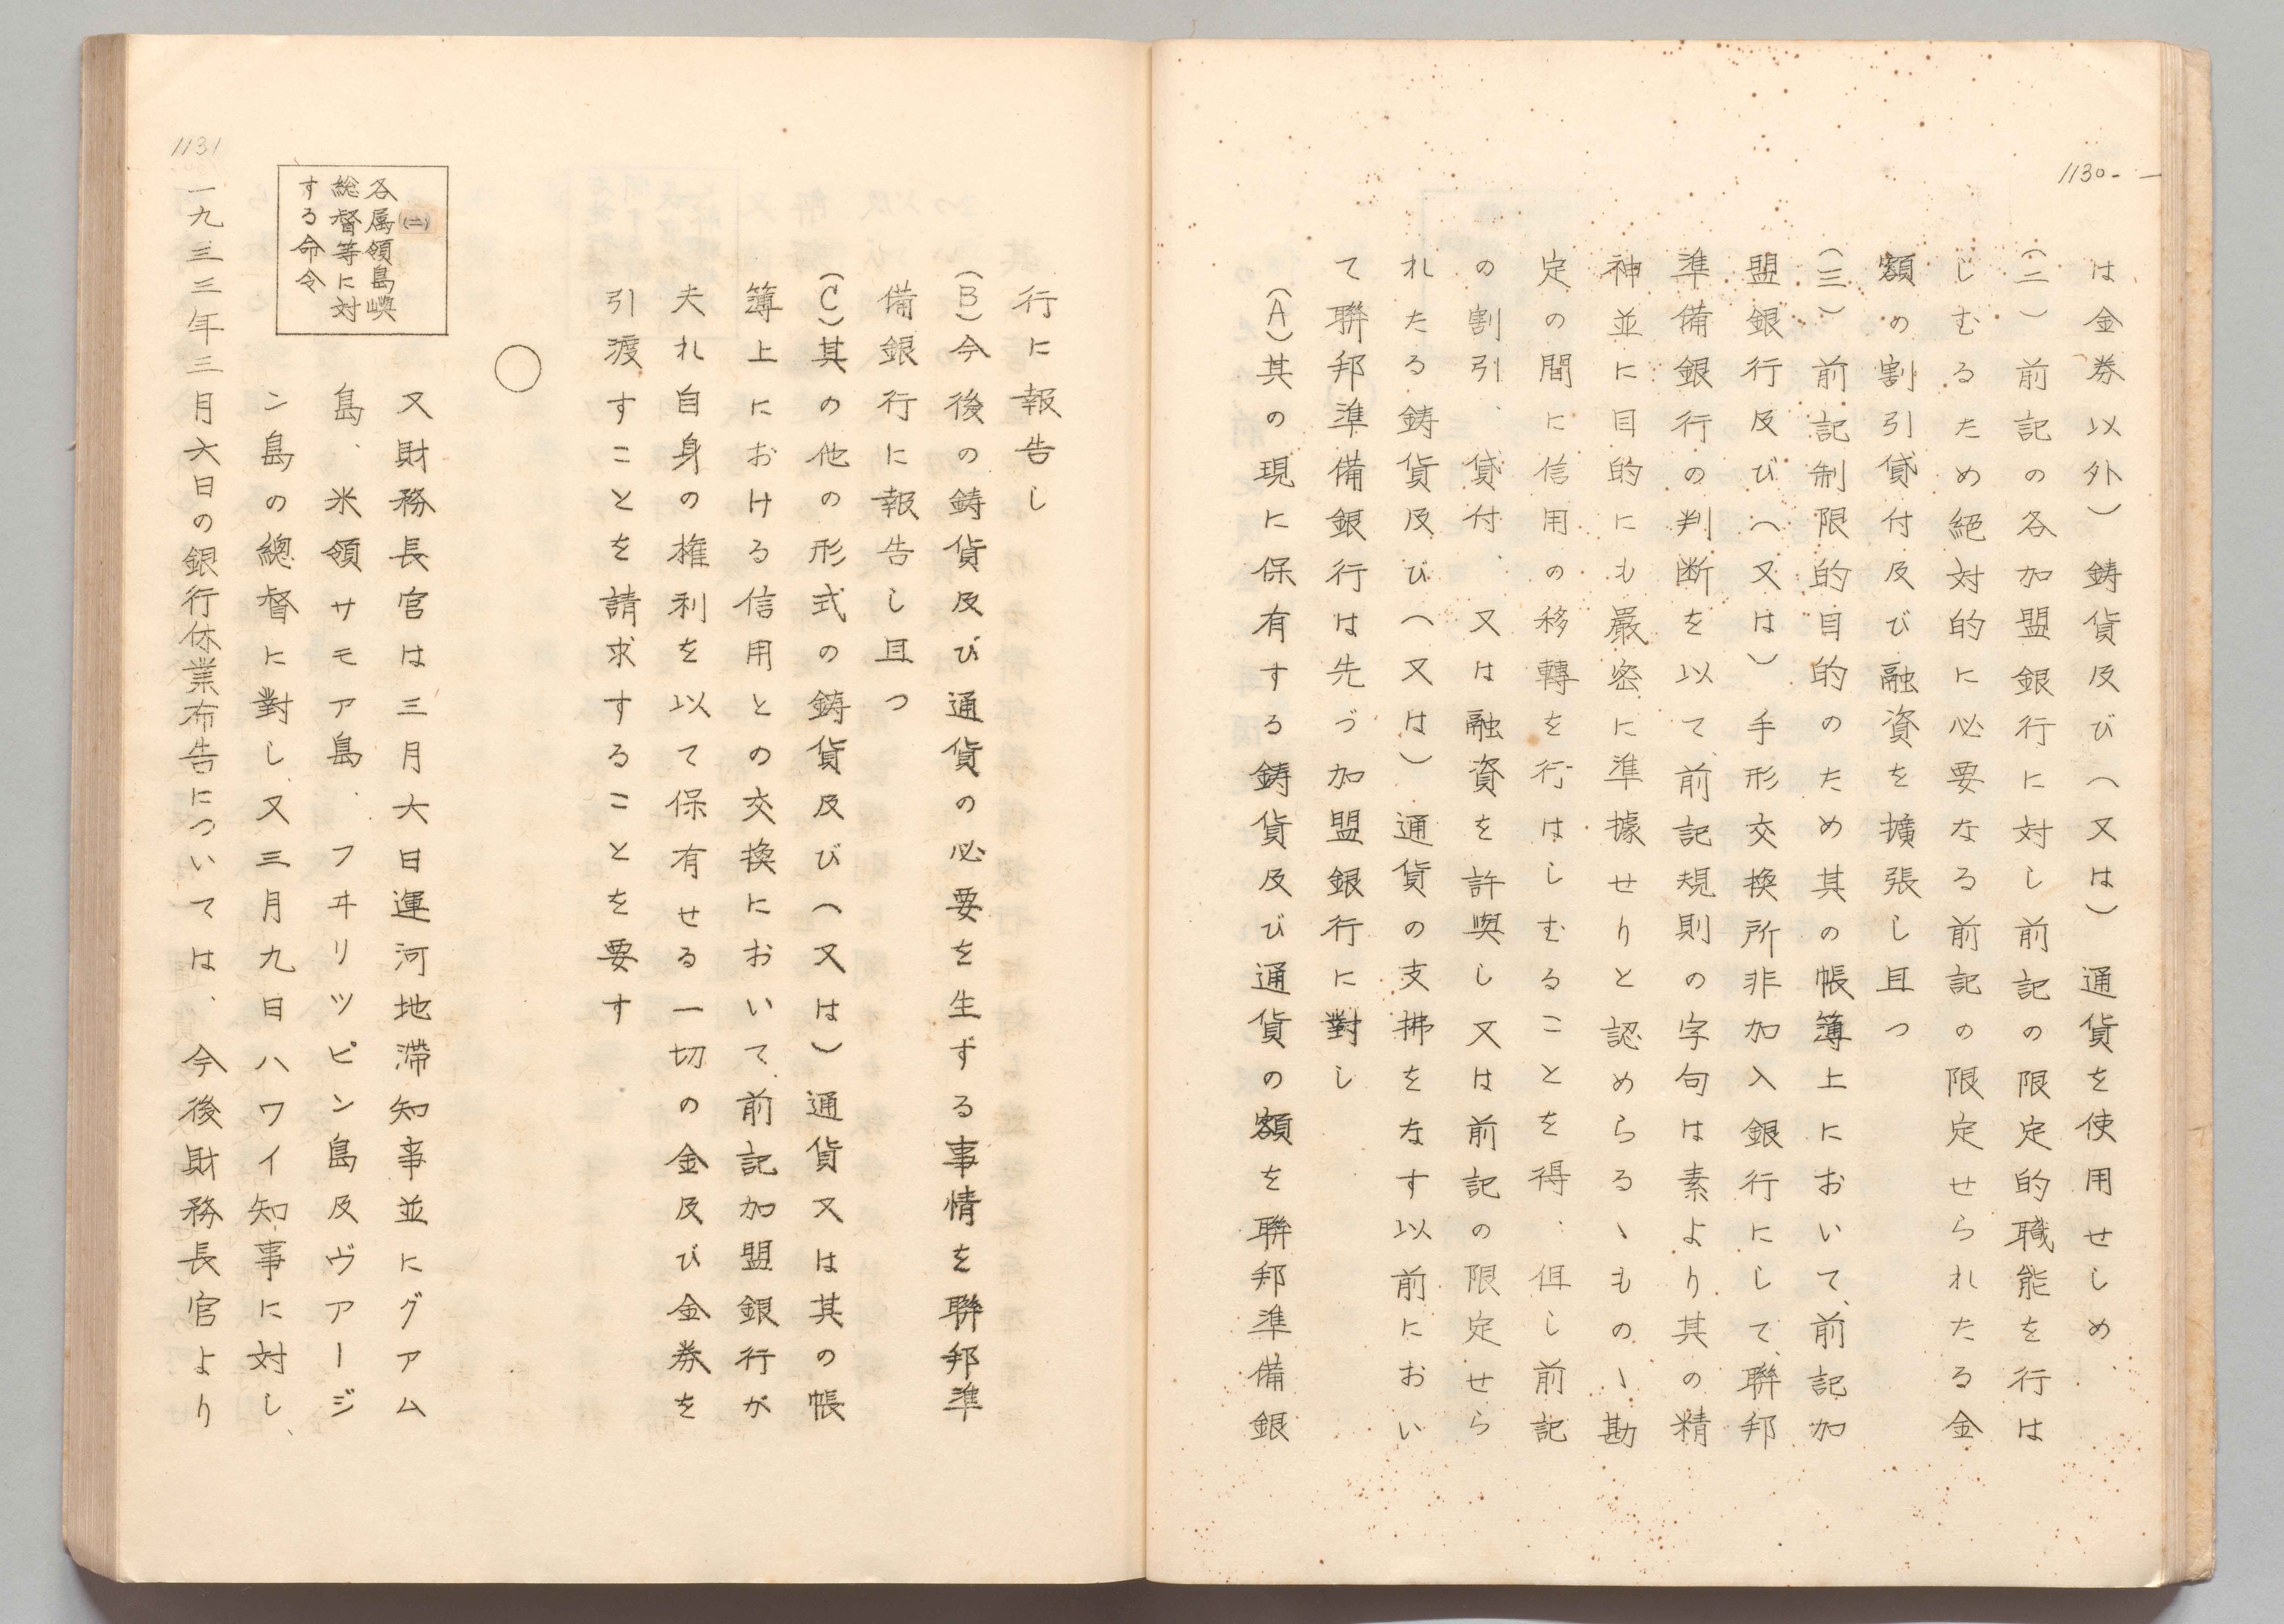 1130
は金券以外)鋳貨及び(又は)通貨を使用せしめ、
(二)前記の各加盟銀行に対し前記の限定的職能を行は
しむるため絶対的に必要なる前記の限定せられたる金
額の割引貸付及び融資を擴張し且つ
(三)前記制限的目的のため其の帳簿上において、前記加
盟銀行及び(又は)手形交換所非加入銀行にして、聯邦
準備銀行の判断を以て前記規則の字句は素より其の精
神並に目的にも嚴密に準據せりと認めらるゝものゝ勘
定の間に信用の移轉を行はしむることを得、但し前記
の割引、貸付、又は融資を許與し又は前記の限定せら
れたる鋳貨及び(又は)通貨の支拂をなす以前におい
て聯邦準備銀行は先づ加盟銀行に對し
(A)其の現に保有する鋳貨及び通貨の額を聯邦準備銀
行に報告し
(B)今後の鋳貨及び通貨の必要を生ずる事情を聯邦準
備銀行に報告し且つ
(C)其の他の形式の鋳貨及び(又は)通貨又は其の帳
簿上における信用との交換において前記加盟銀行が
夫れ自身の権利を以て保有せる一切の金及び金券を
引渡すことを請求することを要す
○
(二)
各属領島嶼
総督等に対
する命令
又財務長官は三月六日運河地滞知事並にグアム
島、米領サモア島、フヰリッピン島及ヴアージ
ン島の總督に對し、又三月九日ハワイ知事に対し、
1131
一九三三年三月六日の銀行休業布告については、今後財務長官より